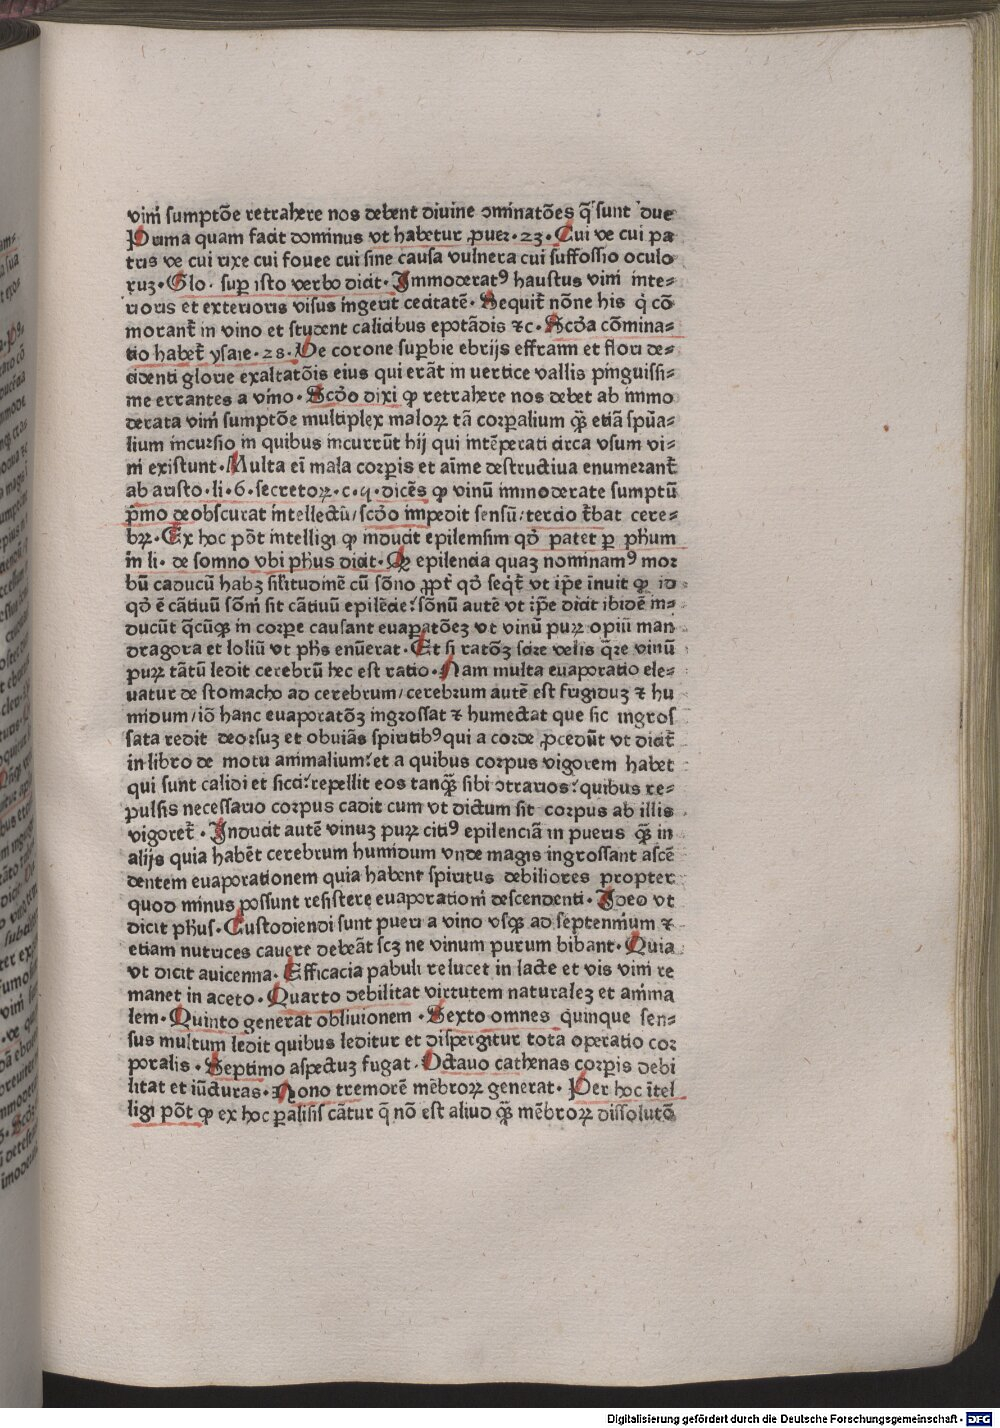 vini sumptõe retrahere nos debent diuine ↄminatões q̃ sunt due
Prima quam facit dominus vt habetur ꝓuer·23·Cui ve cui pa
tris ve cui rixe cui fouee cui sine causa vulnera cui suffossio oculo
ruʒ·Glo· suꝑ isto verbo dicit·Immoderatꝰ haustus vini inte⸗
rioris et exterioris visus ingerit cecitatẽ·Sequit̃ nõne his q̃ cõ
morant̃ in vino et student calicibus epotãdis ⁊c·Scďa cõmina⸗
tio habet̃ ysaie·28·Ve corone suꝑbie ebrijs effraim et flori de⸗
cidenti glorie exaltatõis eius qui erãt in uertice vallis pinguissi⸗
me errantes a vino·Scďo dixi ꝙ retrahere nos debet ab immo
derata vini sumptõe multiplex maloꝝ tã corꝑalium ꝙ̃ etiã spũa⸗
lium incursio in quibus incurrũt hij qui intẽperati circa vsum vi⸗
ni existunt·Multa ei̅ mala corꝑis et aĩme destructiua enumerant̃
ab aristo·li·6·secretoꝝ·c·q·dicẽs ꝙ vinũ immoderate sumptũ
p̃mo deobscurat intellectũ/scďo impedit sensũ/tercio t̃bat cere⸗
bꝝ·Ex hoc põt intelligi ꝙ inducit epilemsim qď patet ꝑ ph̃um
in li· de somno vbi ph̃us dicit·Qꝛ epilencia quaʒ nominamꝰ mor
bũ caducũ habʒ silitudinẽ cũ sõno ꝓpt̃ qď seqt̃ vt ip̃e inuit ꝙ id
qď ẽ cãtiuũ sõni sit cãtiuũ epilẽcie:sõnũ autẽ vt ip̃e dicit ibidẽ in⸗
ducũt q̃cũqꝫ in corꝑe causant euaꝑatõeʒ vt vinũ puꝝ opiũ man
dragora et loliũ vt ph̃s enũerat·Et si ratõʒ scire velis q̃re vinũ
puꝝ tãtũ ledit cerebrũ hec est ratio·Nam multa euaporatio ele⸗
uatur de stomacho ad cerebrum/cerebrum autẽ est frigiduʒ ⁊ hu
midum/iõ hanc euaporatõʒ ingrossat ⁊ humectat que sic ingros
sata redit deorsuʒ et obuiãs spiritibꝰ qui a corde ꝓcedũt vt dicit̃
in libro de motu animalium:et a quibus corpus vigorem habet
qui sunt calidi et sicci:repellit eos tanꝙ̃ sibi ↄtrarios:quibus re⸗
pulsis necessario corpus cadit cum vt dictum sit corpus ab illis
vigoret̃·Inducit autẽ vinuʒ puꝝ citiꝰ epilenciã in pueris ꝙ̃ in
alijs quia habẽt cerebrum humidum vnde magis ingrossant ascẽ
dentem euaporationem quia habent spiritus debiliores propter
quod minus possunt resistere euaporationi descendenti·Ideo vt
dicit ph̃us·Custodiendi sunt pueri a vino vsqꝫ ad septennium ⁊
etiam nutrices cauere debeãt scʒ ne vinum purum bibant·Quia
vt dicit auicenna·Efficacia pabuli relucet in lacte et vis vini re
manet in aceto·Quarto debilitat virtutem naturaleʒ et anima
lem·Quinto generat obliuionem·Sexto omnes quinque sen⸗
sus multum ledit quibus leditur et dispergitur tota operatio cor
poralis·Septimo aspectuʒ fugat·Octauo cathenas corꝑis debi
litat et iũcturas·Nono tremorẽ mẽbroꝝ generat·Per hoc ĩtel
ligi põt ꝙ ex hoc ꝑalisis cãtur q̃ nõ est aliud ꝙ̃ mẽbroꝝ dissolutõ
Digitalisierung gefördert durch die Deutsche Forschungsgemeinschaft - DFG